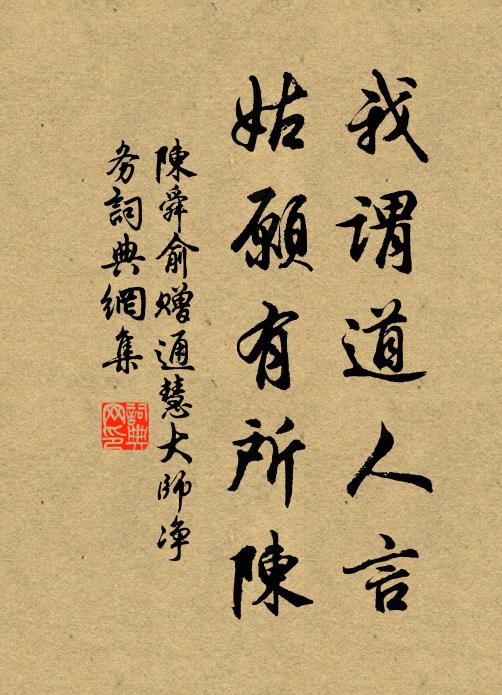 我謂道人言
姑願有所陳
陳舜俞贈通慧大師净
务詞典網集
詞典
网印